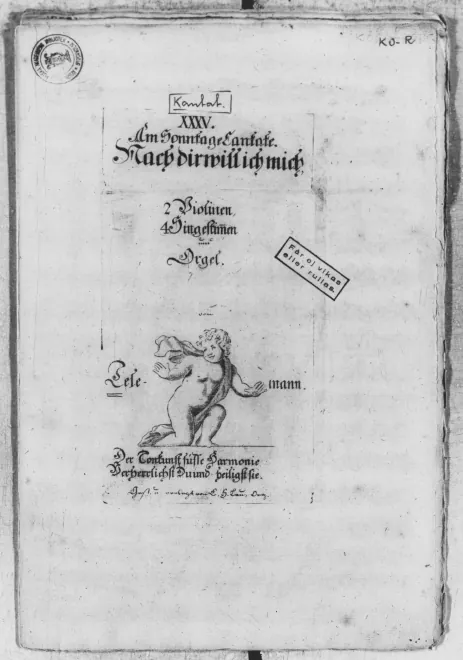 KO-R
Kantat.
XXXV.
Am Sonntage Cantate.
Nach dir will ich mich
2 Violinen,
4 Singestimen
und
Orgel.
Får ej vikas
eller rullas.
von
Tele- mann.
Der Tonkunst süsse Harmonie
Verherrlichst Du und heiligst sie.